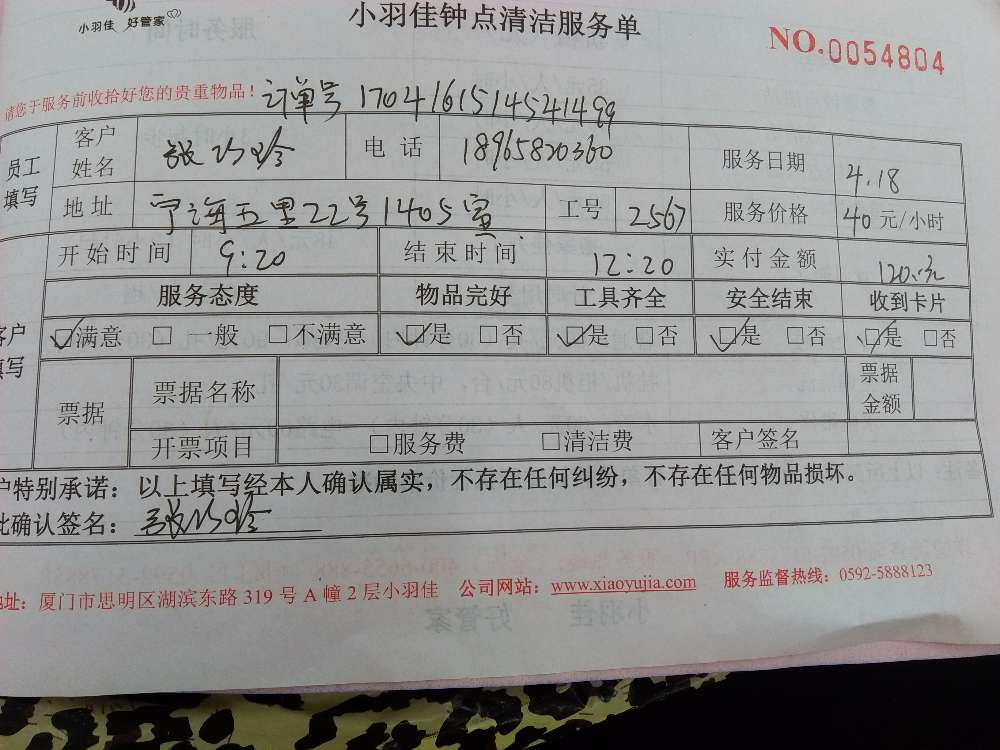 小羽佳 好管家
小羽佳钟点清洁服务单
NO.0054804
请您于服务前收拾好您的贵重物品！ 订单号 17041615145241499
员工填写 客户姓名 张巧玲 电话 18965820360 服务日期 4.18
地址 宁海五里22号1405室 工号 2567 服务价格 40元/小时
开始时间 9:20 结束时间 12:20 实付金额 120元
服务态度 物品完好 工具齐全 安全结束 收到卡片
客户填写 满意 一般 不满意 是 否 是 否 是 否 是 否
票据 票据名称 票据金额
开票项目 服务费 清洁费 客户签名
户特别承诺：以上填写经本人确认属实，不存在任何纠纷，不存在任何物品损坏。
此确认签名：张巧玲
地址：厦门市思明区湖滨东路319号A幢2层小羽佳 公司网站：www.xiaoyujia.com 服务监督热线：0592-5888123